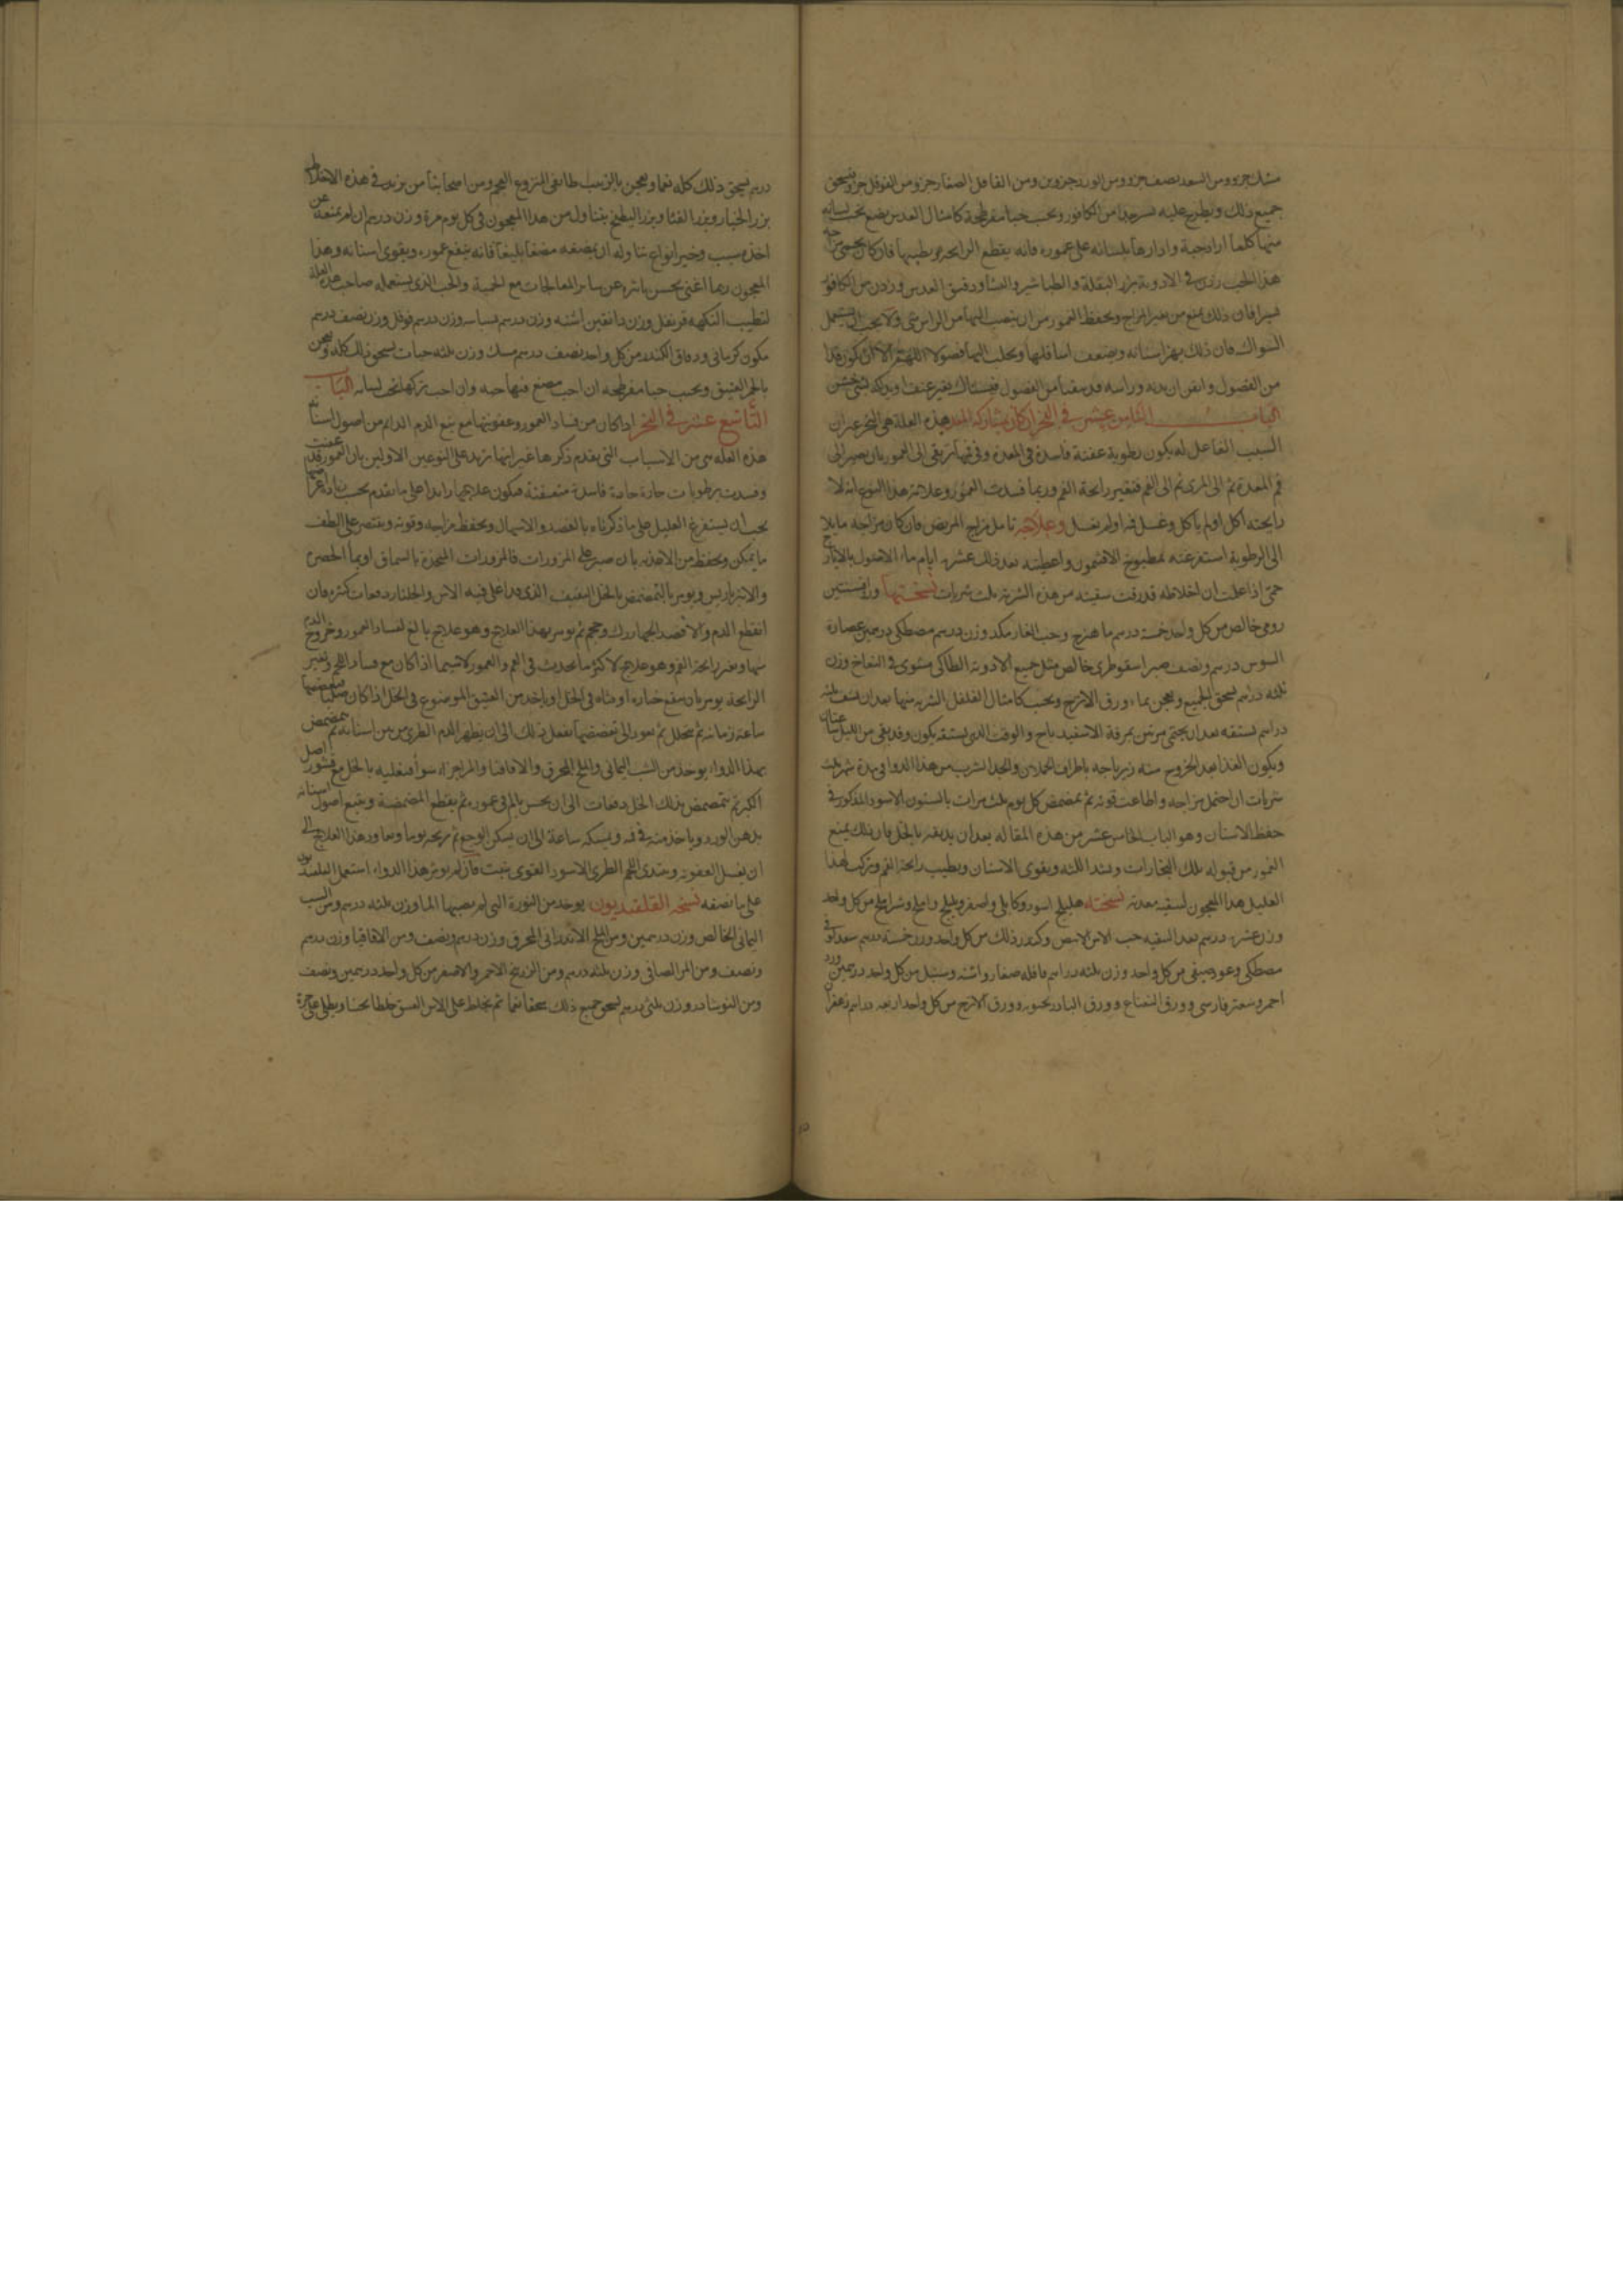 مسك جزو ومن السعد نصف جزو ومن الورد جزوين ومن القاقلى الصغار جزو ومن الفوفل جزو يسحق
جميع ذلك ويطرح عليه من الكافور ويحبب حبا مفرطحة كامثال العدس يضع تحت لسانه
منها كلما اراد حبة وادارها بلسانه على عموره فانه يقطع الرايحة ويطيبها فان كان
هذا الحب زدن في الادوية بزر البقلة والطباشير والنشا ودقيق العدس وزدن من الكافور
فان ذلك يمنع من تغير المزاج ويحفظ العمور من ان ينصب اليها من الراس شى ولا يجب ان يستعمل
السواك فان ذلك يهز اسنانه ويضعف اسافلها ويجلب اليها فضولا اللهم الا ان يكون قد
من الفضول وايقن ان بدنه وراسه قد نقيا من الفضول فيستاك بغير عنف او يدلكه بشى خشن
الباب الثامن عشر في البخر اذا كان بمشاركة المعدة هذه العلة هي البخر غير ان
السبب الفاعل له يكون رطوبة عفنة فاسدة في المعدة وفي فمها ترتقي الى العمور بان يصير الى
فم المعدة ثم الى المرى ثم الى الفم فتغير رايحة الفم وربما فسدت العمور وعلامة هذا النوع انه لا
رايحته اكل او لم ياكل وغسل فمه او لم يغسل وعلاجه تامل مزاج المريض فان كان مزاجه مايلا
الى الرطوبة استفرغته بمطبوخ الافتيمون واعطيته بعد ذلك عشرة ايام ماء الاصول بالايارج
حتى اذا علمت ان اخلاطه قد رقت سقيته من هذه الشربة ثلث شربات نسختها ورد افسنتين
رومي خالص من كل واحد خمسة درهم ماهيزج وحب الغار مكد وزن درهم مصطكى درهمين عصارة
السوس درهم ونصف صبر اسقوطري خالص مثل جميع الادوية
ثلثه دراهم يسحق الجميع ويعجن بماء ورق الاترج ويحبب كامثال الفلفل الشربة منها بعد ان
دراهم تسقه بعد ان يحتمي مرتين بمرقة الاسفيدباج والوقت الذي يستقه يكون وقد بقي من الليل
ويكون الغذا بعد الخروج منه زيرباجه باطراف الحملان والجدا لشرب من هذا الدوا في مدة شهر ثلث
شربات ان احتمل مزاجه واطاعت قوته ثم يمضمض كل يوم ثلث مرات بالسنون الاسود المذكور في
حفظ الاسنان وهو الباب الخامس عشر من هذه المقاله بعد ان يديفه بالخل فان ذلك يمنع
العمور من قبوله تلك البخارات ويشد اللثه ويقوى الاسنان ويطيب رايحة الفم وتركب لهذا
العليل هذا المعجون لسقية معدته نسخته هليلج اسود وكابلي واصفر وبليج واملج وشير املج من كل واحد
وزن عشرة درهم بعد السقيه حب الاس الابيض وكندر ذلك من كل واحد وزن خمسة درهم سعد كوفي
مصطكى وعود صيني من كل واحد وزن ثلثه دراهم قاقله صغار واشنه وسنبل من كل واحد درهمين ورد
احمر وسعتر فارسي وورق النعناع وورق البادرنجبويه وورق الاترج من كل واحد اربعه دراهم زعفران
درهم يسحق ذلك كله نعما ويعجن بالزبيب طائفي المنزوع العجم ومن اصحابنا من يزيد في هذه الاخلاط
بزر الخيار وبزر القثا وبزر البطيخ يتناول من هذا المعجون في كل يوم مرة وزن درهم ان لم يمنعه عن
اخذه سبب وخير انواع تناوله ان يمضغه مضغا بليغا فانه ينفع عموره ويقوى اسنانه وهذا
المعجون ربما اغنى بحسن تاثيره عن ساير المعالجات مع الحمية والحب الذي يستعمله صاحب هذه العلة
لتطيب النكهة قرنفل وزن دانقين اشنه وزن درهم بسباسه وزن درهم فوفل وزن نصف درهم
مكون كرماني ودقاق الكندر من كل واحد نصف درهم مسك وزن ثلثه حبات يسحق ذلك كله ويعجن
بالخمر العتيق ويحبب حبا مفرطحه ان احب مضغ منها حبه وان احب تركها تحت لسانه الباب
التاسع عشر في البخر اذا كان من فساد العمور وعفونتها مع نبع الدم الدايم من اصول اسنانه
هذه العله هي من الاسباب التي تقدم ذكرها غير انها تزيد على النوعين الاولين بان العمور قد عفنت
وفسدت برطوبات حارة حادة فاسدة متعفنة فيكون علاجها زايدا على ما تقدم بحسب زيادة
يجب ان يستفرغ العليل على ما ذكرناه بالفصد والاسهال ويحفظ مزاجه وقوته ويقتصر على الطف
ما يمكن ويحفظ من الاغذية بان صبر على المزورات فالمزورات المتخذة بالسماق او بماء الحصرم
والانبرباريس ويومر بالتمضمض بالخل الثقيف الذي قد اغلي فيه الاس والجلنار دفعات كثيره فان
انقطع الدم والا فصد الجهاررك وحجم ثم يومر بهذا العلاج وهو علاج بالغ لفساد العمور وخروج الدم
منها وتغير رايحة الفم وهو علاج لاكثر ما يحدث في الفم والعمور لا سيما اذا كان مع فساد اللحم وتغير
الرايحة يومر بان
ساعة زمانيه ثم يتخلل ثم يعود الى تمضمضها يفعل ذلك الى ان يظهر الدم الطري من بين اسنانه ثم يتمضمض
بهذا الدواء يوخذ من الشب اليماني والملح المحرق والاقاقيا والمر اجزاء سوا فيغليه بالخل مع قشور اصل
الكبر ثم يتمضمض بذلك الخل دفعات الى ان يحس بالم في عموره ثم يقطع المضمضة ويتبع اصول اسنانه
بدهن الورد وياخذ منه في فمه ويمسكه ساعة الى ان يسكن الوجع ثم يريحه يوما ويعاود هذا العلاج الى
ان يغسل العفونه ويبتدى اللحم الطري الاسود القوى ينبت فان لم يوثر هذا الدواء استعمل القلقنديون
على ما نصفه نسخه القلقنديون يوخذ من النورة التي لم يصبها الما وزن ثلثه درهم ومن الشب
اليماني الخالص وزن درهمين ومن الملح الاندراني المحرق وزن درهم ونصف ومن الاقاقيا وزن درهم
ونصف ومن المر الصافي وزن ثلثه درهم ومن الزرنيخ الاحمر والاصفر من كل واحد درهمين ونصف
ومن النوشادر وزن ثلثي درهم يسحق جميع ذلك سحقا نعما ثم يخلط على